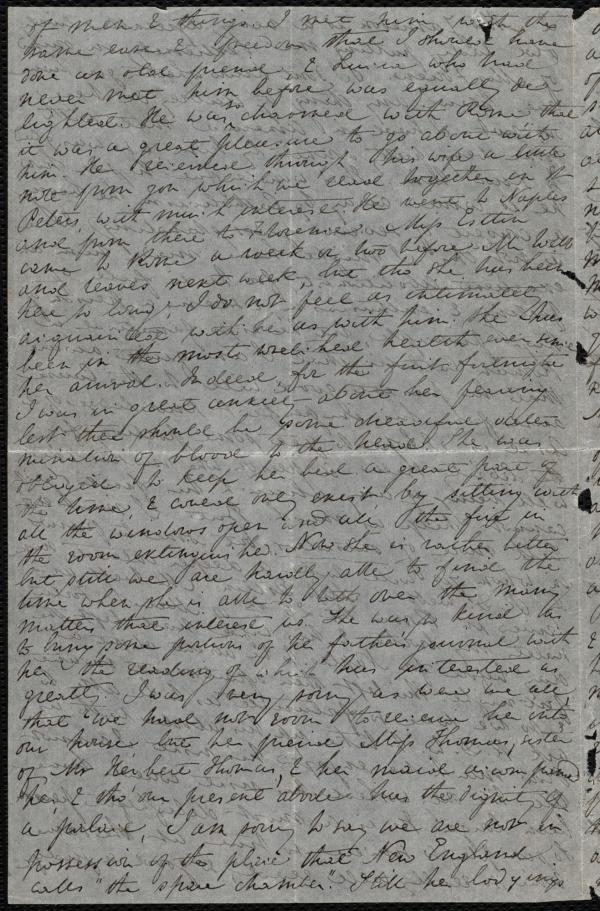 of men & things. I met him with the
same ease & freedom that I should have
done an old friend, & Louisa who had
never met him before was equally de
lighted. He was so charmed with Rome that
it was a great pleasure to go about with
him. He received through his wife a little
note from you which we read together in St
Peters with much interest. He went to Naples
and from there to Florence. Miss Estlin
came to Rome a week or two before Mr Webb
and leaves next week, but tho she has been
here so long I do not feel as intimately
acquainted with her as with him. She has
been in the most wretched health ever since
her arrival. Indeed, for the first fortnight
I was in great anxiety about her fearing
lest there should be some dreadful deter
mination of blood to the head. She was
obliged to keep her bed a great part of
the time, & could only exist by sitting with
all the windows open and all the fire in
the room extinguished. Now she is rather better
but still we are hardly able to find the
time when she is able to talk over the many
matters that interest us. She was so kind as
to bring some portions of her father's journal with
her, the reading of which has interested us
greatly. I was very sorry as were we all
that we had not room to receive her into
our house but her friend Miss Thomas, sister
of Mr Herbert Thomas, & her maid accompanied
her, & tho' our present abode has the dignity of
a palace, I am sorry to say we are not in
possession of the place that New England
calls "the spare chamber". Still her lodgings